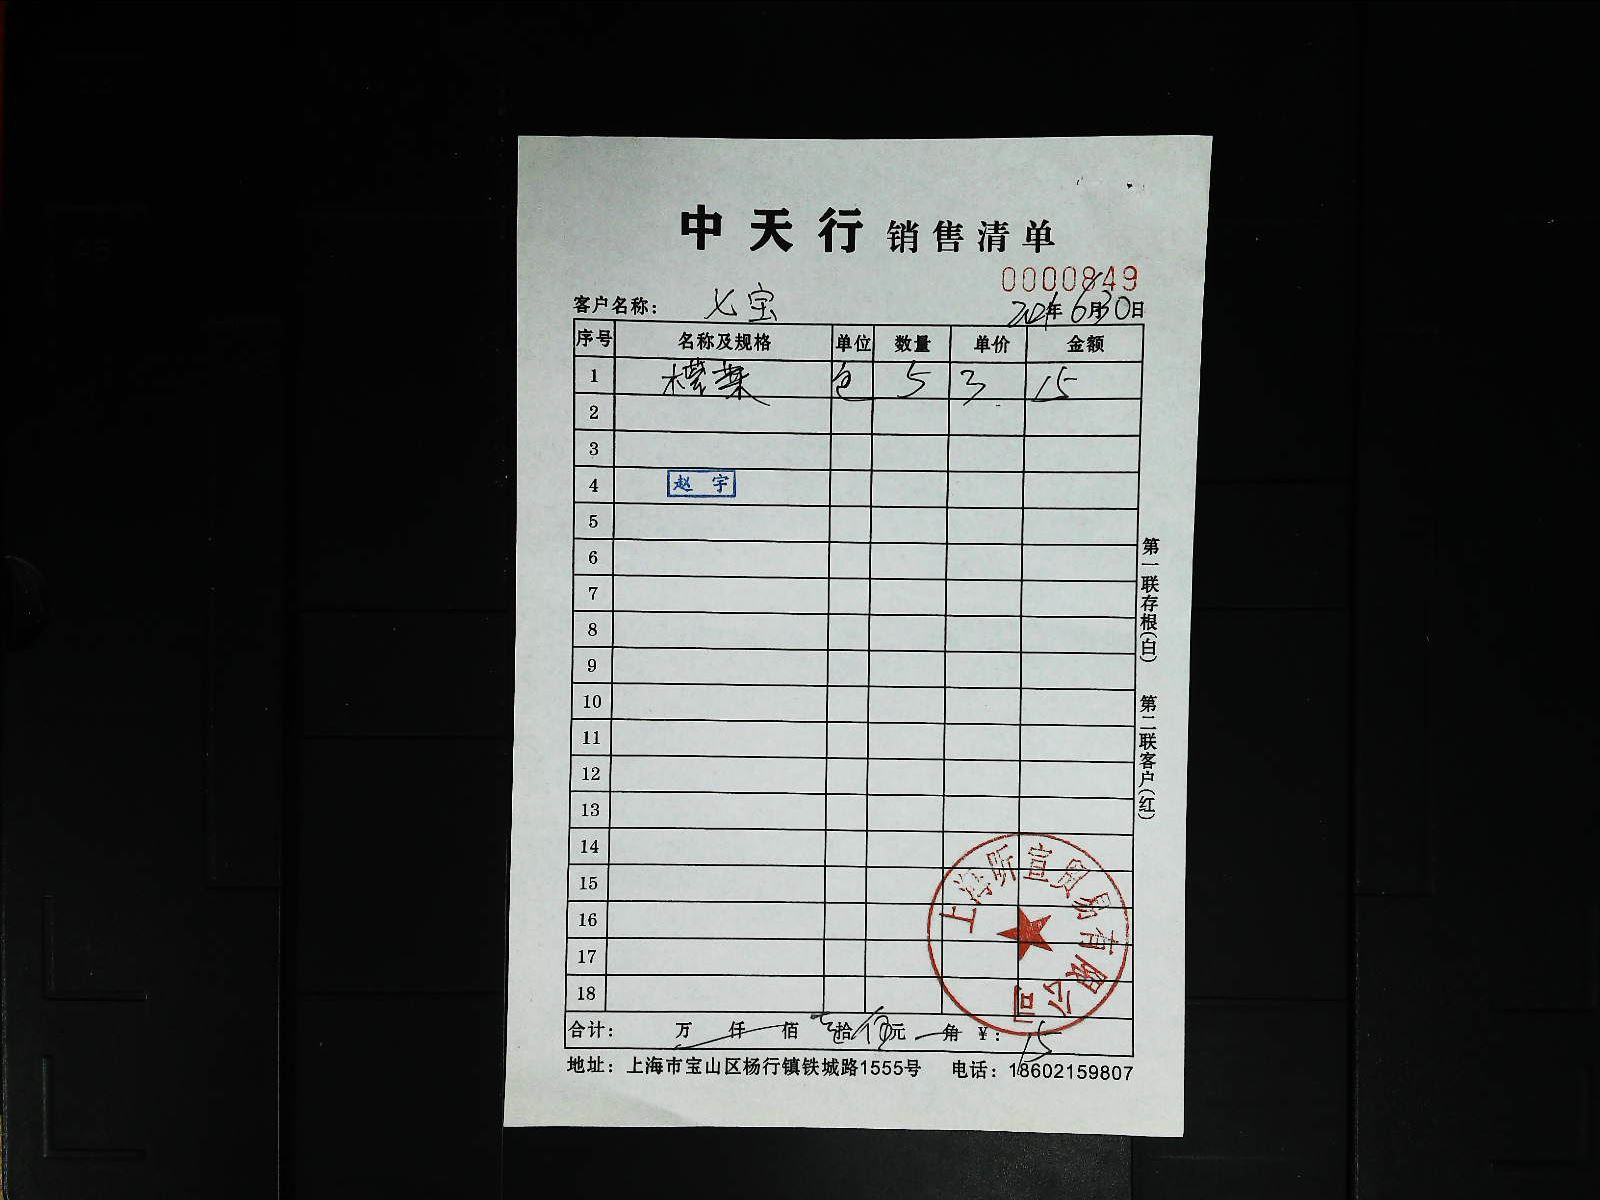 中天行 销售清单
0000849
客户名称： 七宝 2021年6月30日
序号 名称及规格 单位 数量 单价 金额
1 包 5 3 15
2
3
4 赵宇
5
6
7
8
9
10
11
12
13
14
15
16
17
18
上海昕宣贸易有限公司
合计： 万 仟 佰 壹拾伍元 角 ¥：15
地址：上海市宝山区杨行镇铁城路1555号 电话：18602159807
第一联存根(白) 第二联客户(红)